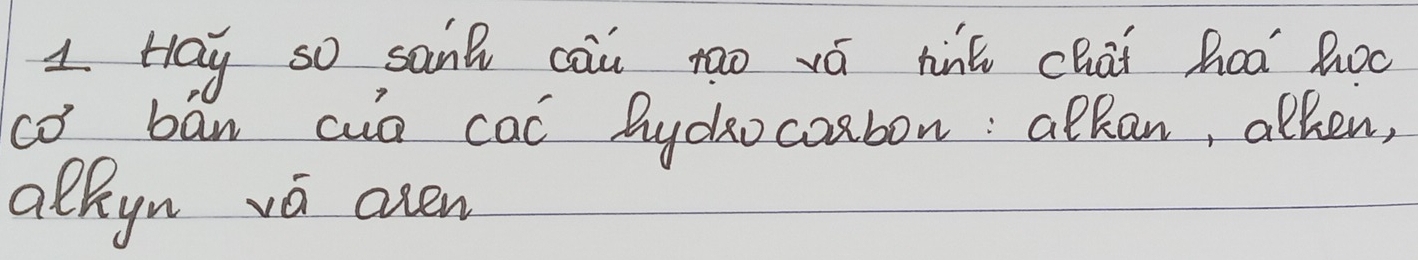 1 Hãy so sánh cấu tạo và tính chất hoá học
cơ bản của các hydrocarbon : alkan, alken,
alkyn và aren